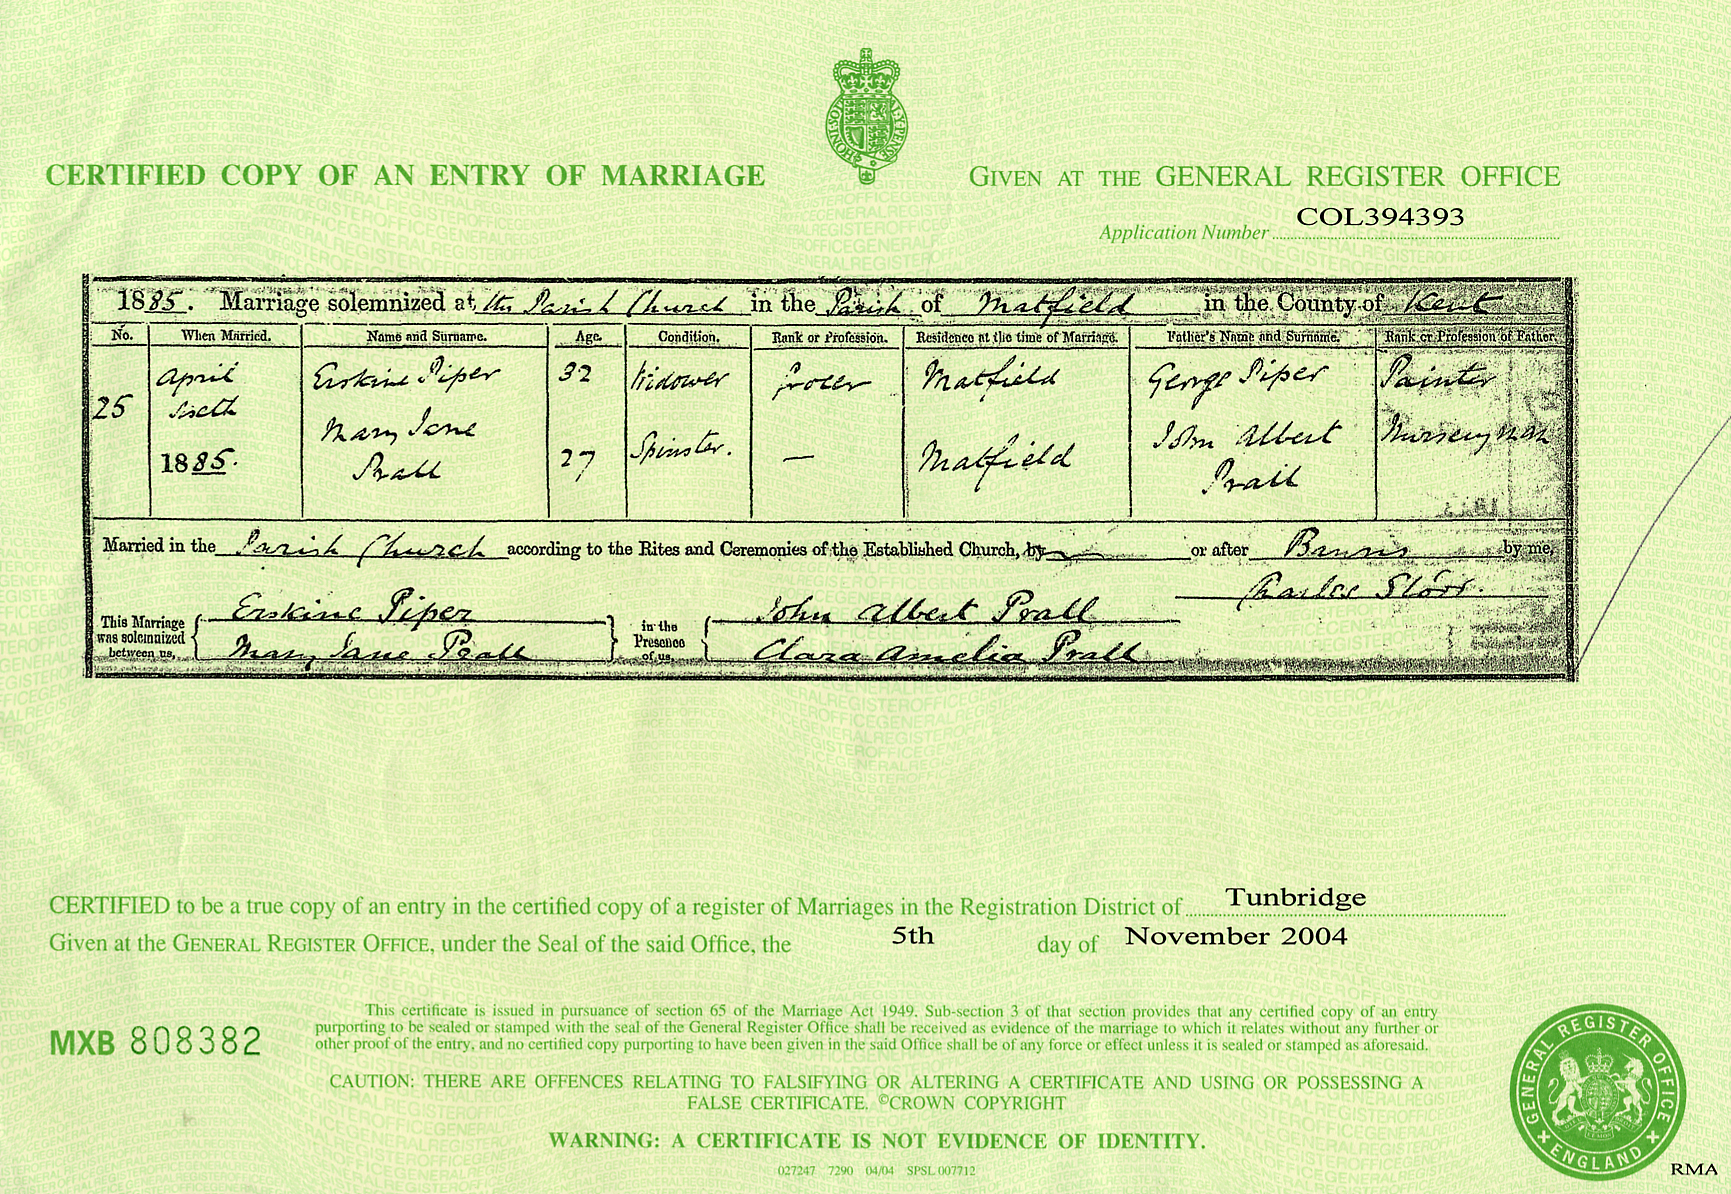 HONI·SOIT·Y·PENSE
CERTIFIED COPY OF AN ENTRY OF MARRIAGE
GIVEN AT THE GENERAL REGISTER OFFICE
Application Number COL394393
1885. Marriage solemnized at the Parish Church in the Parish of Matfield in the County of Kent
No. When Married. Name and Surname. Age. Condition. Rank or Profession. Residence at the time of Marriage. Father's Name and Surname. Rank or Profession of Father.
April Erskine Piper 32 Widower Grocer Matfield George Piper Painter
25 sixth
Mary Jane Spinster. John Albert Nurseryman
1885. Prall 27 — Matfield Prall
Married in the Parish Church according to the Rites and Ceremonies of the Established Church, by — or after Banns by me,
Charles Storr.
This Marriage was solemnized between us, { Erskine Piper } in the Presence of us, { John Albert Prall
Mary Jane Prall Clara Amelia Prall
CERTIFIED to be a true copy of an entry in the certified copy of a register of Marriages in the Registration District of Tunbridge
Given at the GENERAL REGISTER OFFICE, under the Seal of the said Office, the 5th day of November 2004
This certificate is issued in pursuance of section 65 of the Marriage Act 1949. Sub-section 3 of that section provides that any certified copy of an entry
MXB 808382 purporting to be sealed or stamped with the seal of the General Register Office shall be received as evidence of the marriage to which it relates without any further or
other proof of the entry, and no certified copy purporting to have been given in the said Office shall be of any force or effect unless it is sealed or stamped as aforesaid.
CAUTION: THERE ARE OFFENCES RELATING TO FALSIFYING OR ALTERING A CERTIFICATE AND USING OR POSSESSING A
FALSE CERTIFICATE. ©CROWN COPYRIGHT
WARNING: A CERTIFICATE IS NOT EVIDENCE OF IDENTITY.
027247 7290 04/04 SPSL 007712
GENERAL REGISTER OFFICE
ENGLAND
RMA